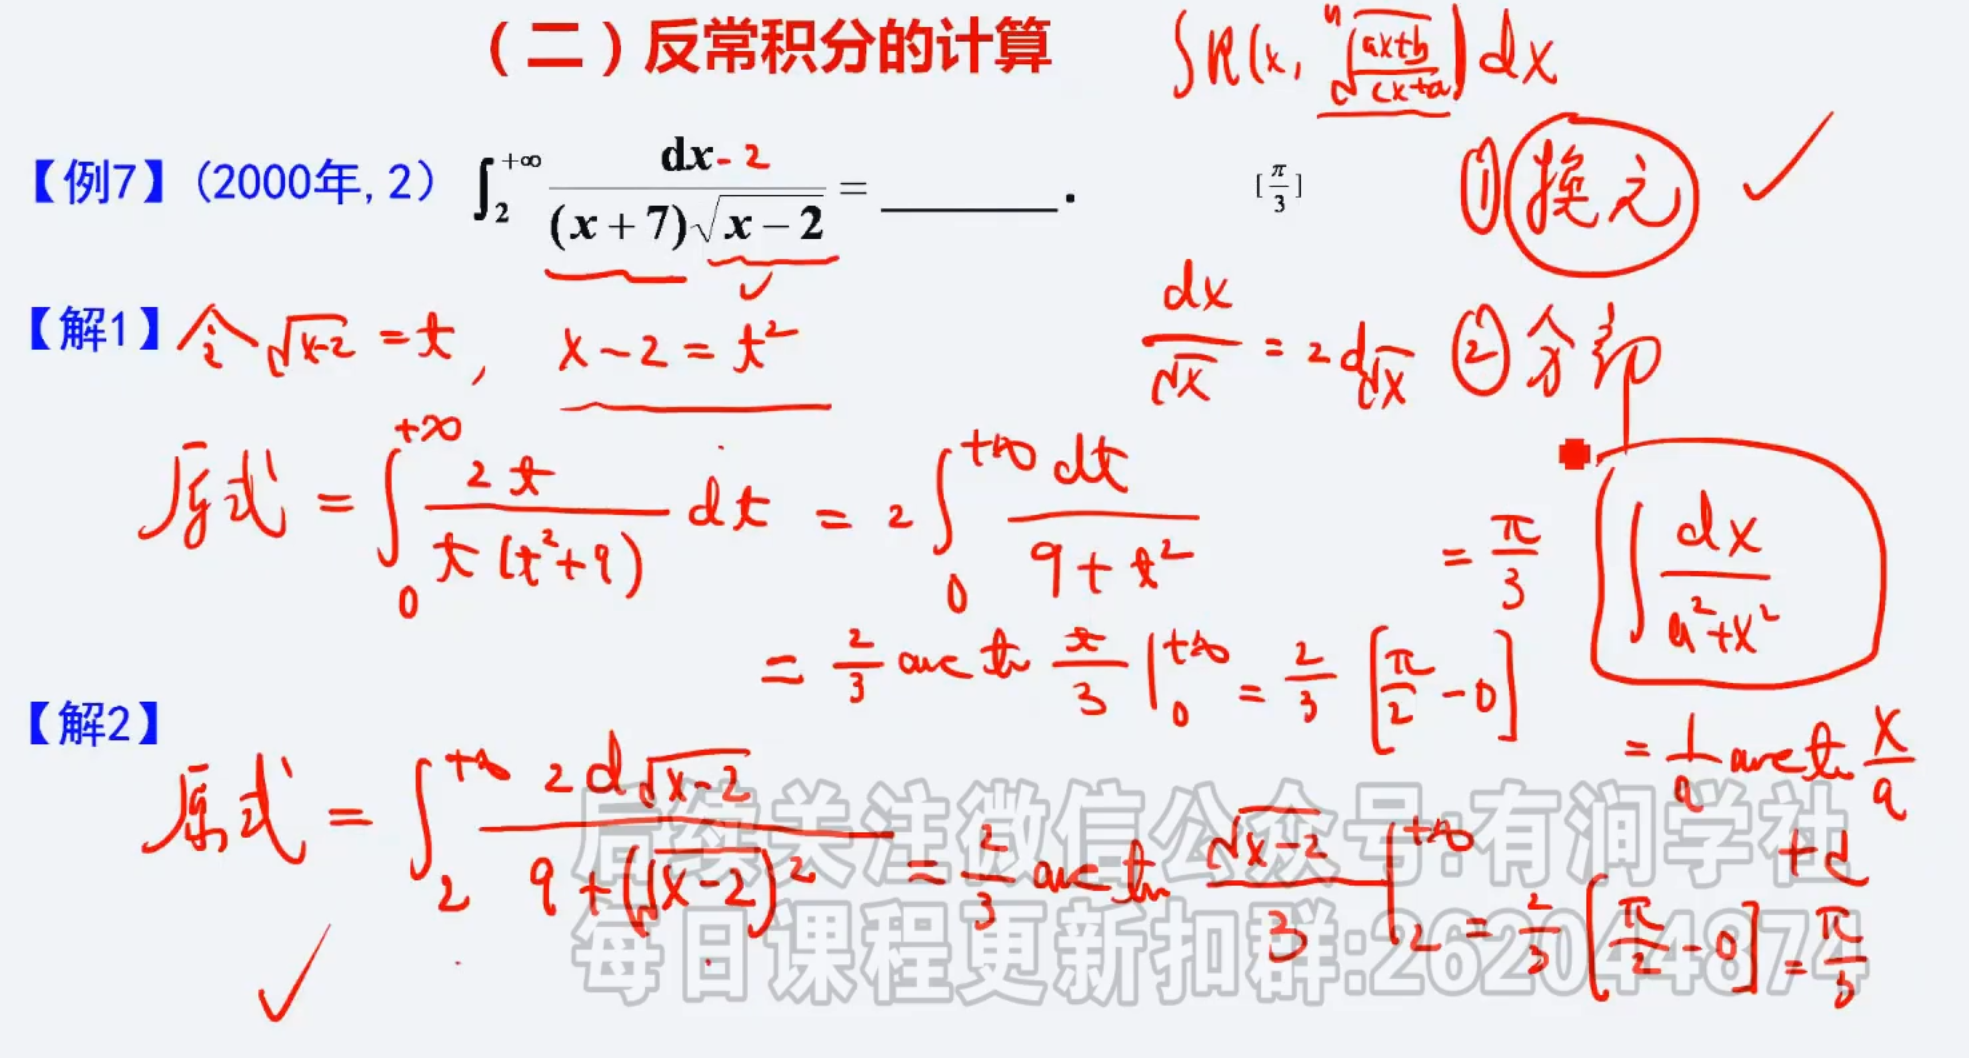 (二)反常积分的计算
∫R(x, ⁿ√((ax+b)/(cx+d)))dx
【例7】(2000年,2) ∫₂^{+∞} dx-2 / ((x+7)√(x-2)) = ______. [π/3]
① 换元 ✓
【解1】令√(x-2) = t, x-2 = t²
dx/√x = 2d√x ② 分部
原式 = ∫₀^{+∞} 2t/(t(t²+9)) dt = 2∫₀^{+∞} dt/(9+t²)
= π/3
∫ dx/(a²+x²)
= 2/3 arctan t/3 |₀^{+∞} = 2/3 [π/2 - 0]
= 1/a arctan x/a
+c
【解2】
原式 = ∫₂^{+∞} 2d√(x-2) / (9+(√(x-2))²) = 2/3 arctan √(x-2)/3 |₂^{+∞} = 2/3 [π/2 - 0] = π/3
后续关注微信公众号:有润学社
每日课程更新扣群:262044874